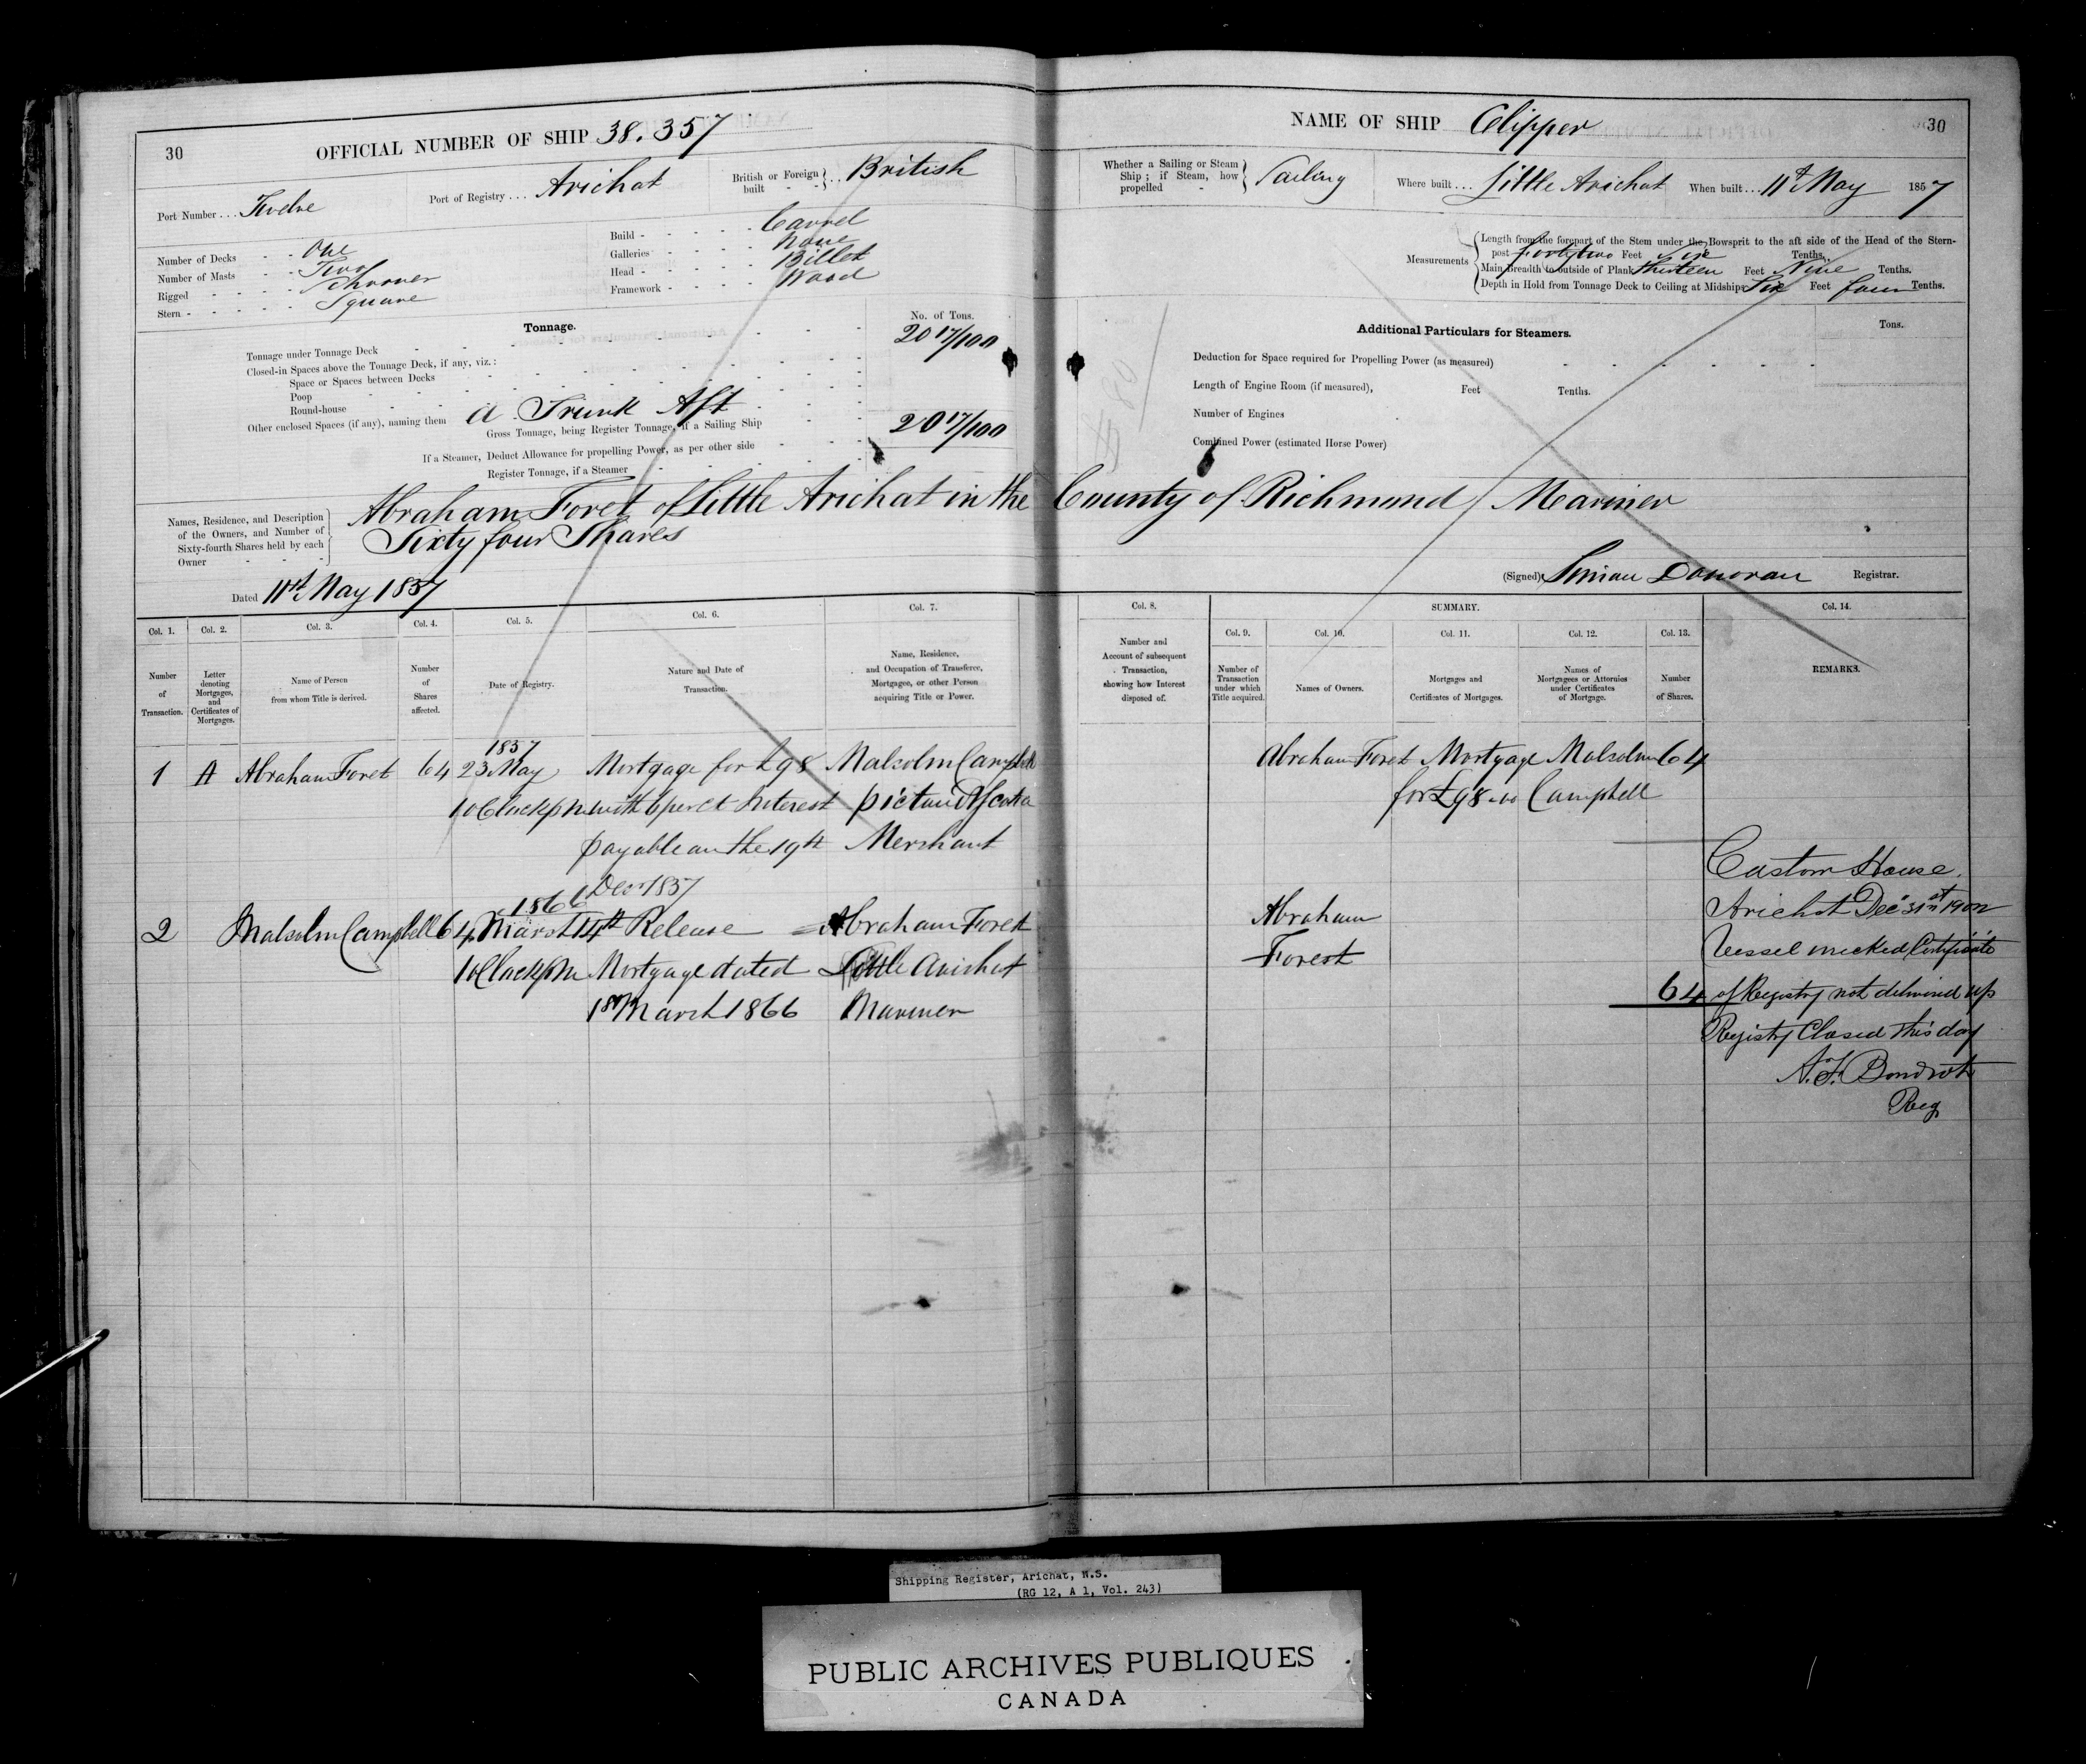 30
OFFICIAL NUMBER OF SHIP 38.357
Port Number . . . Twelve
Port of Registry . . . Arichat
British or Foreign built - - } . . British
Number of Decks - - One
Number of Masts - - Two
Rigged - - - - Schooner
Stern - - - - - Square
Build - - - - - Carvel
Galleries - - - - None
Head - - - - - Billet
Framework - - - - Wood
Tonnage.
No. of Tons.
Tonnage under Tonnage Deck 20 17/100
Closed-in Spaces above the Tonnage Deck, if any, viz.:
Space or Spaces between Decks
Poop
Round-house
Other enclosed Spaces (if any), naming them a Trunk Aft
Gross Tonnage, being Register Tonnage, if a Sailing Ship 20 17/100
If a Steamer, Deduct Allowance for propelling Power, as per other side
Register Tonnage, if a Steamer
NAME OF SHIP Clipper
30
Whether a Sailing or Steam Ship; if Steam, how propelled - } Sailing
Where built . . . Little Arichat
When built . . . 11th May 1857
Measurements
Length from the forepart of the Stem under the Bowsprit to the aft side of the Head of the Stern-
post forty two Feet Tenths.
Main Breadth to outside of Plank thirteen Feet Nine Tenths.
Depth in Hold from Tonnage Deck to Ceiling at Midships Six Feet four Tenths.
Additional Particulars for Steamers.
Tons.
Deduction for Space required for Propelling Power (as measured)
Length of Engine Room (if measured), Feet Tenths.
Number of Engines
Combined Power (estimated Horse Power)
Names, Residence, and Description
of the Owners, and Number of
Sixty-fourth Shares held by each
Owner
Abraham Foret of Little Arichat in the County of Richmond Mariner
Sixty four Shares
Dated 11th May 1857
(Signed) Donovan Registrar.
Col. 1. Col. 2. Col. 3. Col. 4. Col. 5. Col. 6. Col. 7.
Number of Transaction.
Letter denoting Mortgages, and Certificates of Mortgages.
Name of Person from whom Title is derived.
Number of Shares affected.
Date of Registry.
Nature and Date of Transaction.
Name, Residence, and Occupation of Transferee, Mortgagee, or other Person acquiring Title or Power.
Col. 8. SUMMARY. Col. 14.
Col. 9. Col. 10. Col. 11. Col. 12. Col. 13.
Number and Account of subsequent Transaction, showing how Interest disposed of.
Number of Transaction under which Title acquired.
Names of Owners.
Mortgages and Certificates of Mortgages.
Names of Mortgagees or Attornies under Certificates of Mortgage.
Number of Shares.
REMARKS.
1857
1 A Abraham Foret 64 23 May Mortgage for £98 Malcolm Campbell
10 Clock pm with 6 per ct Interest pictou N Scotia
payable on the 19th Merchant
Decr 1857
1866
2 Malcolm Campbell 64 March 14th Release Abraham Forest
10 Clock pm Mortgage dated Little Arichat
March 1866 Mariner
Abraham Foret Mortgage Malcolm 64
for £98 Campbell
Abraham
Forest
64
Custom House.
Arichat Dec 31st 1902
Vessel wrecked Certificate
of Registry not delivered up
Registry Closed this day
Reg
Shipping Register, Arichat, N.S.
(RG 12, A 1, Vol. 243)
PUBLIC ARCHIVES PUBLIQUES
CANADA